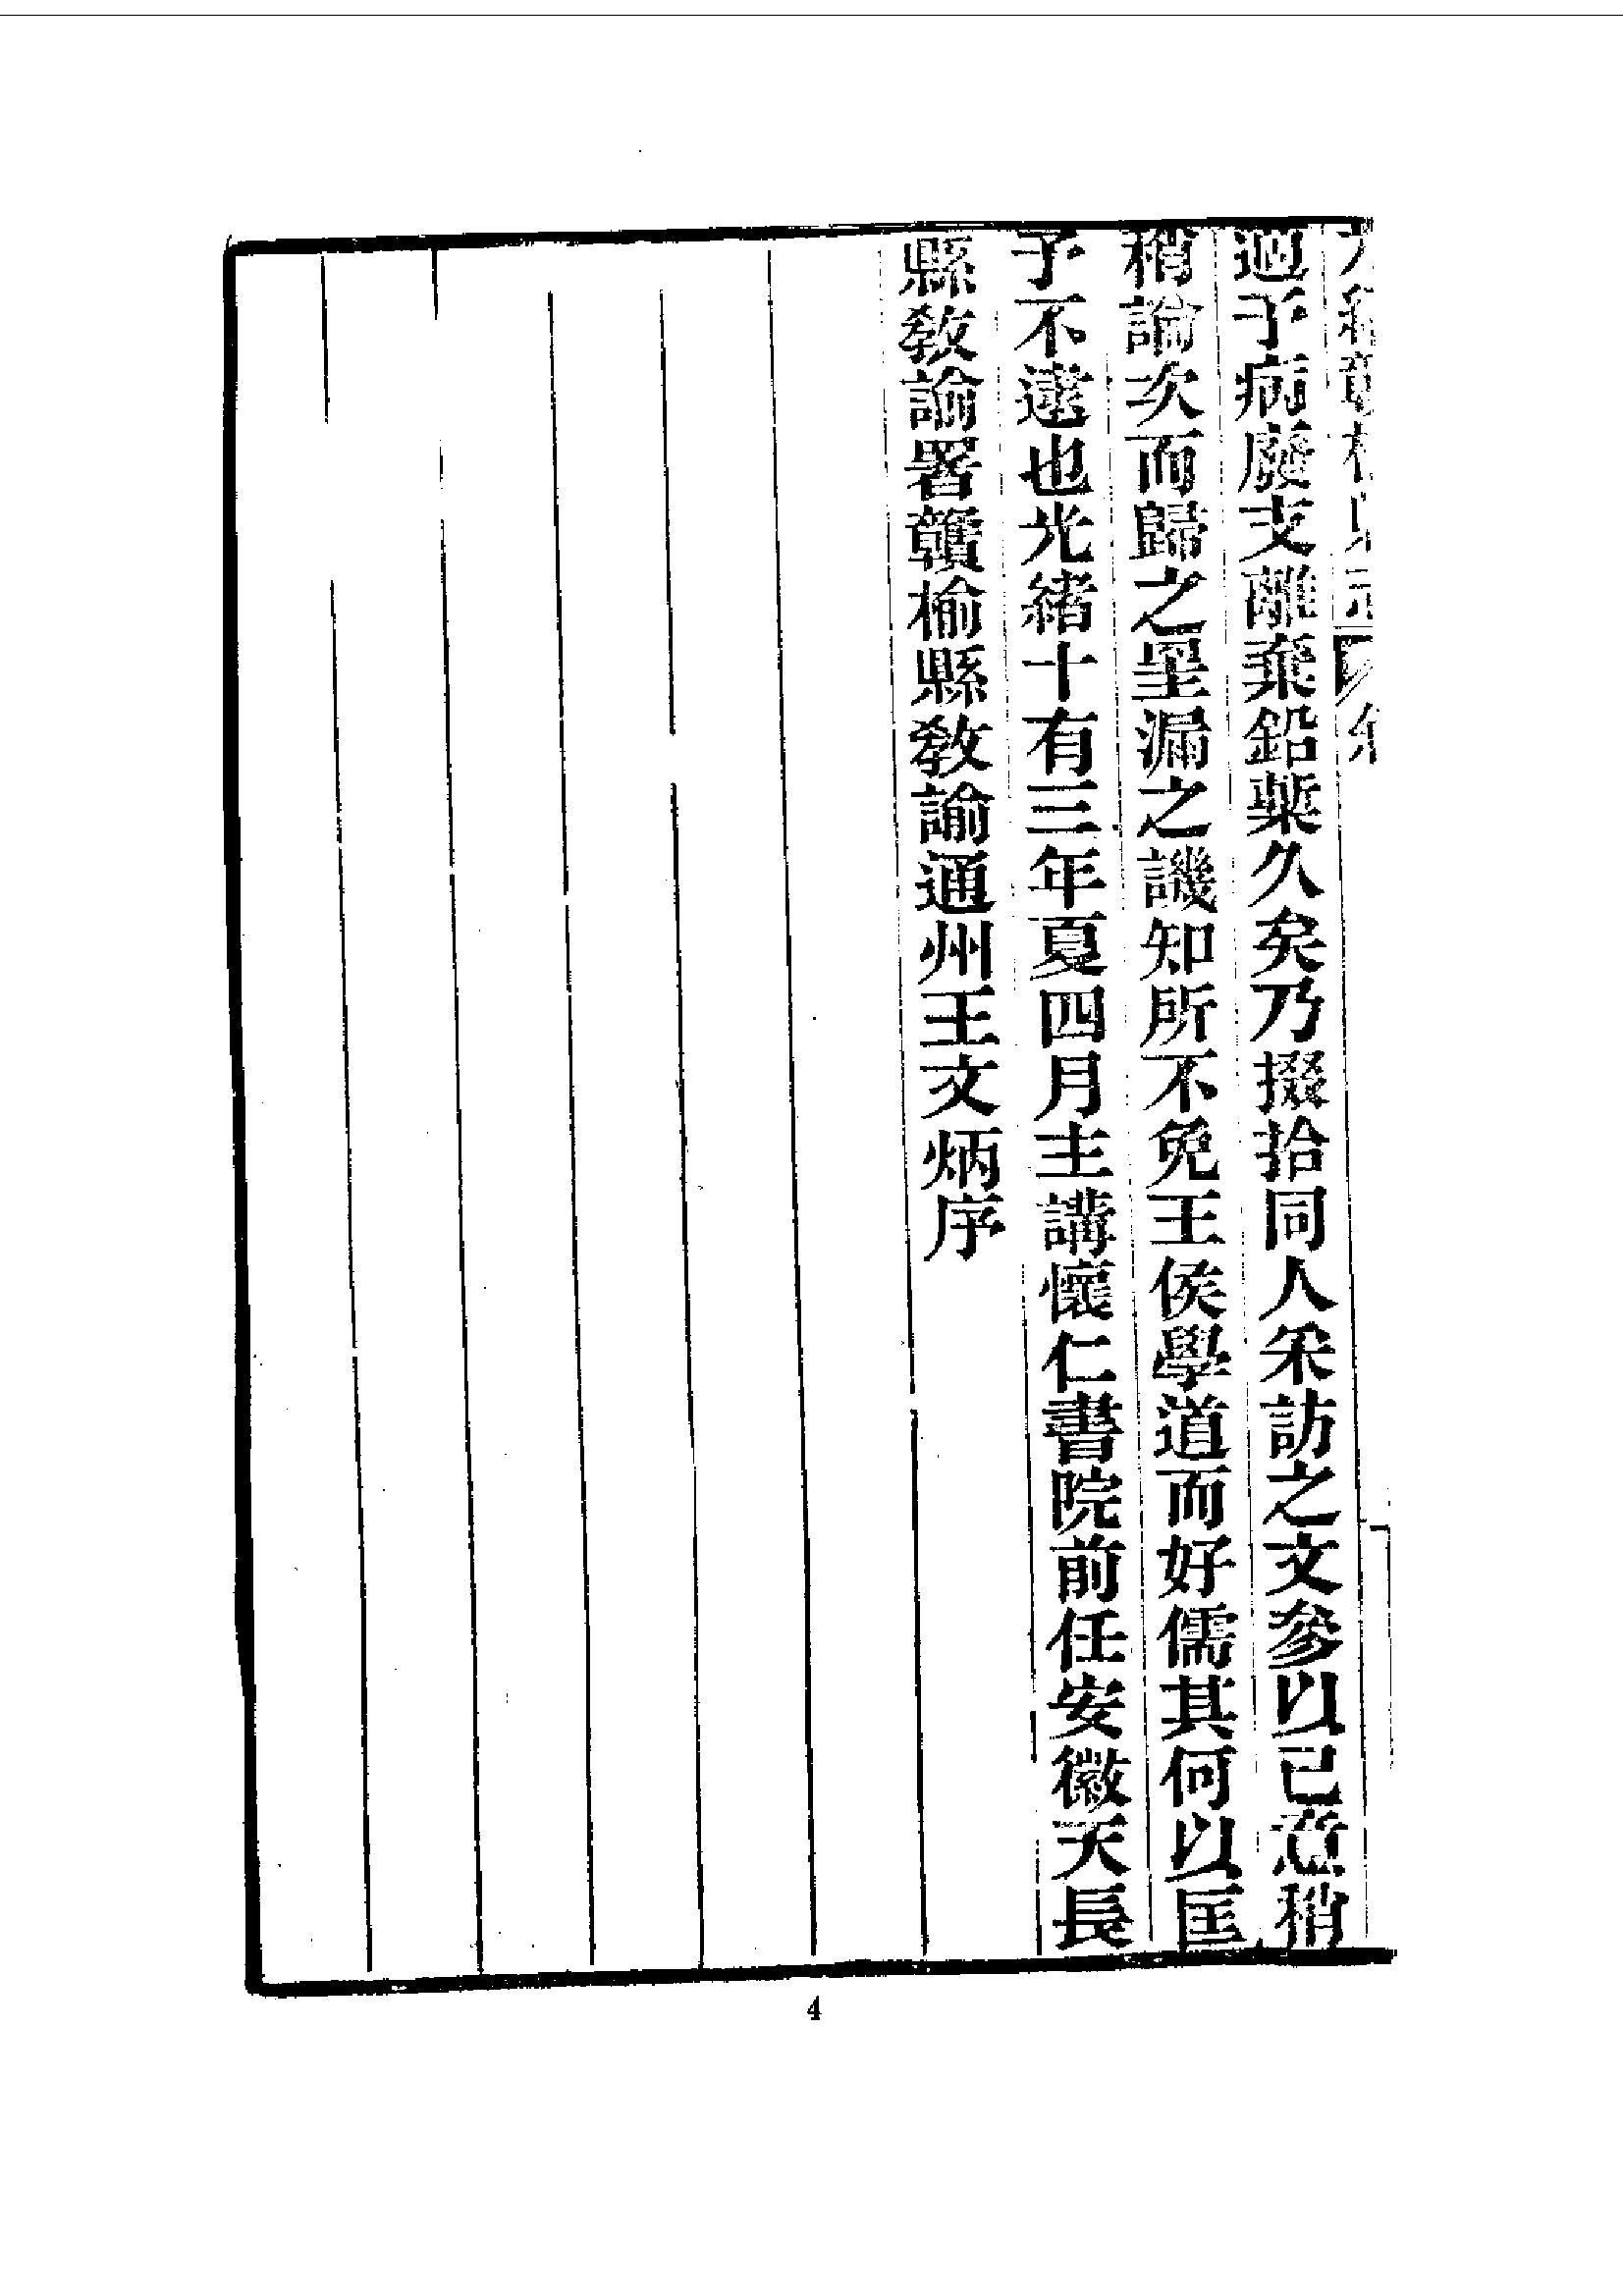 適予病廢支離棄鉛槧久矣乃掇拾同人采訪之文參以己意稍
稍論次而歸之罣漏之譏知所不免王侯學道而好儒其何以匡
予不逮也光緒十有三年夏四月主講懷仁書院前任安徽天長
縣敎諭署贛榆縣敎諭通州王文炳序
4